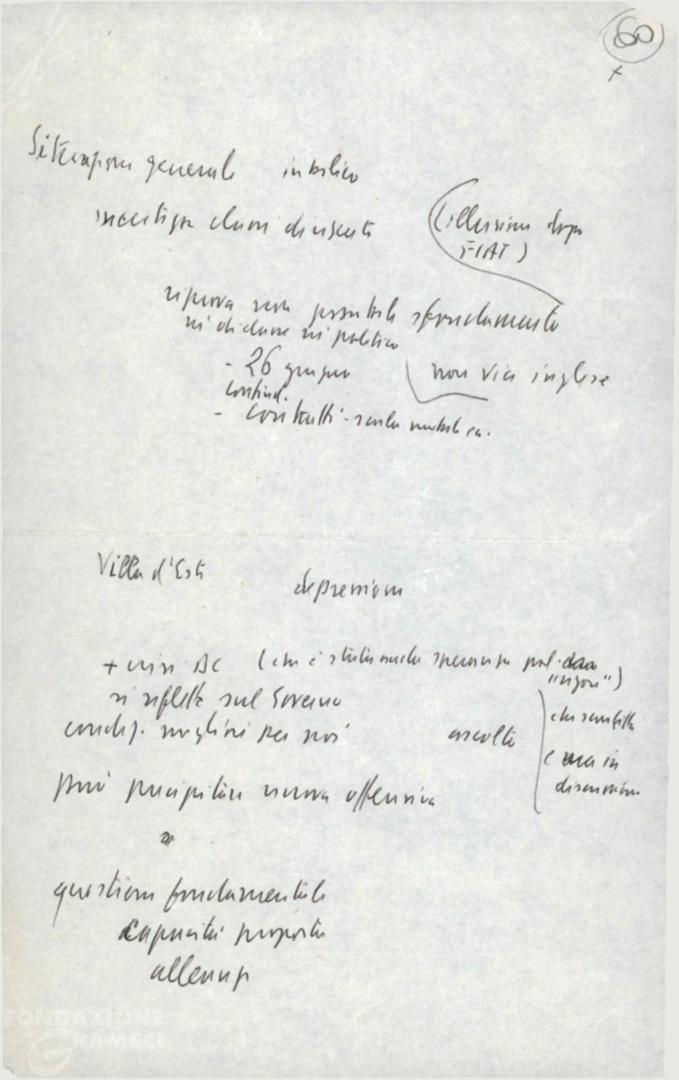 60
+
Situazione generale in bilico
incertezza classi dirigenti
(illusioni dopo
FIAT)
riprova non possibile sfondamento
né di classe né politico
- 26 giugno
non via inglese
confind.
- contratti - scala mobile
Villa d'Este
depressione
+ crisi DC (che è stata anche speranza
"rigore")
si riflette sul Governo
condiz. migliori per noi
ascolto
ma in
discussione
può precipitare nuova offensiva
questione fondamentale
capacità proposta
alleanze
FONDAZIONE
GRAMSCI